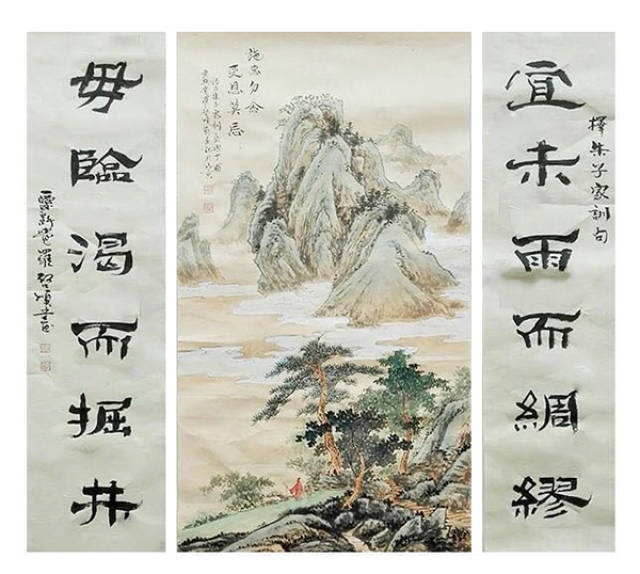 宜未雨而綢繆
擇朱子家訓句
施惠勿念
受恩莫忘
毋臨渴而掘井
愛新覺羅